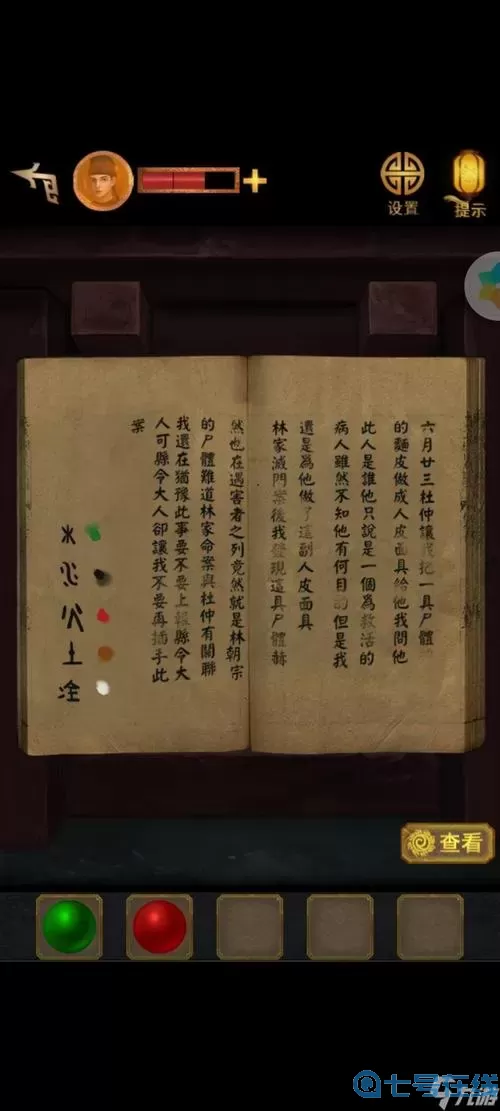 设置
提示
六月廿三杜仲讓我把一具尸體
的麵皮做成人皮面具給他我問他
此人是誰他只說是一個為救活的
病人雖然不知他有何目的但是我
還是為他做了這副人皮面具
林家滅門案後我發現這具尸體赫
然也在遇害者之列竟然就是林朝宗
的尸體難道林家命案與杜仲有關聯
我還在猶豫此事要不要上報縣令大
人可縣令大人卻讓我不要再插手此
案
木
水
火
土
金
查看
七号在线
九游